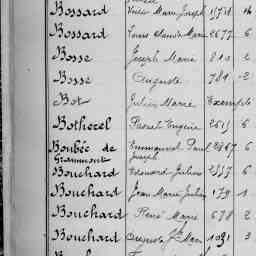 Bossard Marie Joseph
Bossard Louis Claude Marie 2677 6
Bosse Joseph Marie 810 2
Bosse Auguste 781 2
Bot Julien Marie Exempté
Bothorel Eugène 6
Boubée de Grammont Emmanuel Paul Joseph 6
Bouchard Edouard Julien 6
Bouchard Jean Marie Julien 179 1
Bouchard René Marie 678 2
Bouchard Auguste Marie 1091 3